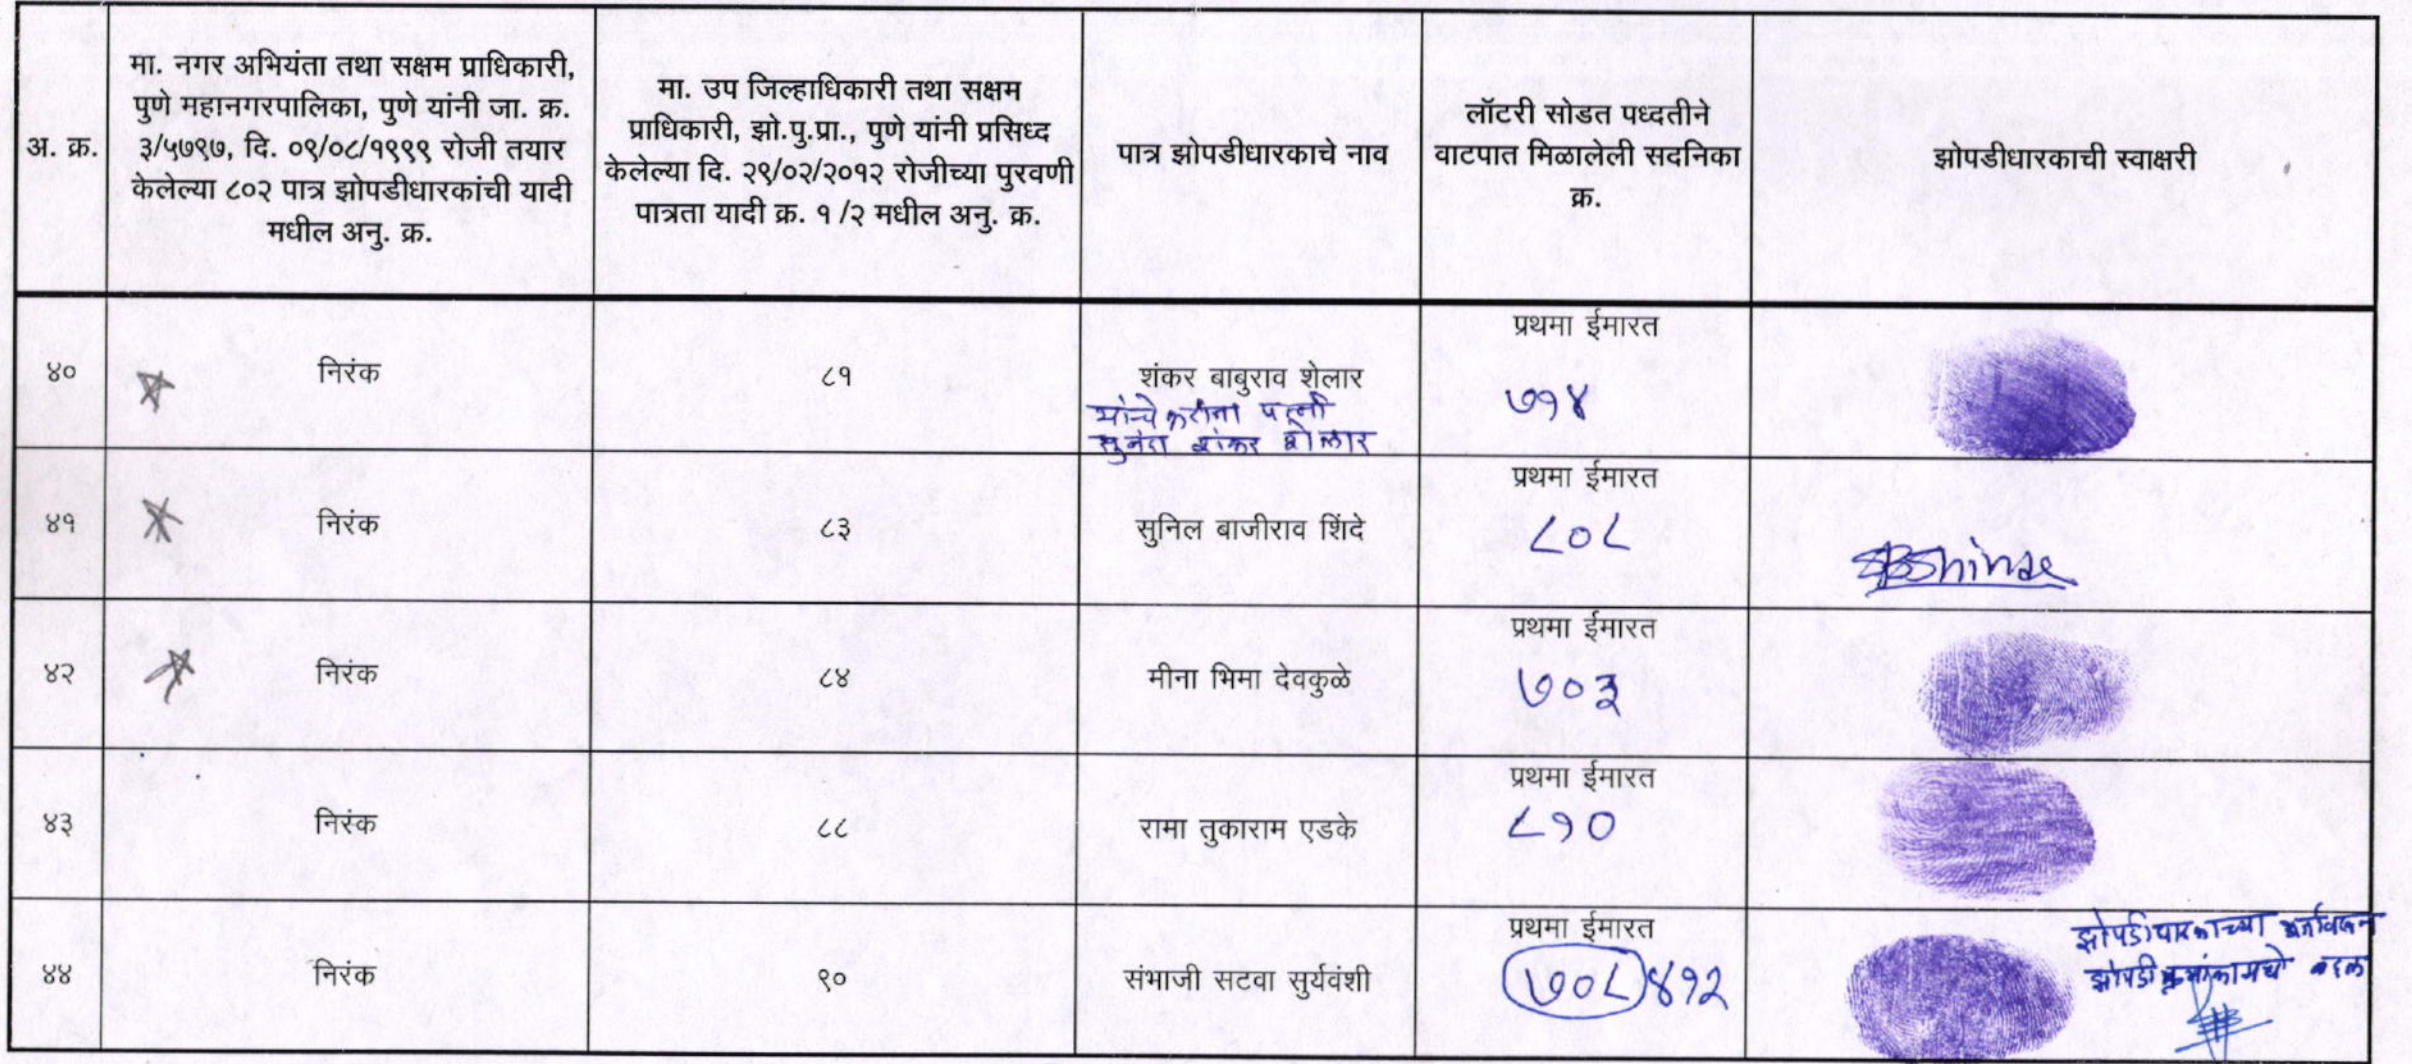 अ. क्र.
मा. नगर अभियंता तथा सक्षम प्राधिकारी,
पुणे महानगरपालिका, पुणे यांनी जा. क्र.
३/५७९७, दि. ०९/०८/१९९९ रोजी तयार
केलेल्या ८०२ पात्र झोपडीधारकांची यादी
मधील अनु. क्र.
मा. उप जिल्हाधिकारी तथा सक्षम
प्राधिकारी, झो.पु.प्रा., पुणे यांनी प्रसिध्द
केलेल्या दि. २९/०२/२०१२ रोजीच्या पुरवणी
पात्रता यादी क्र. १/२ मधील अनु. क्र.
पात्र झोपडीधारकाचे नाव
लॉटरी सोडत पध्दतीने
वाटपात मिळालेली सदनिका
क्र.
झोपडीधारकाची स्वाक्षरी
४०
निरंक
८१
शंकर बाबुराव शेलार
यांचे करीता पत्नी
शंकर शेलार
प्रथमा ईमारत
७१४
४१
निरंक
८३
सुनिल बाजीराव शिंदे
प्रथमा ईमारत
८०८
SBShinde
४२
निरंक
८४
मीना भिमा देवकुळे
प्रथमा ईमारत
७०३
४३
निरंक
८८
रामा तुकाराम एडके
प्रथमा ईमारत
८१०
४४
निरंक
९०
संभाजी सटवा सुर्यवंशी
प्रथमा ईमारत
७०८ ४१२
झोपडीधारकाच्या
झोपडी बदल